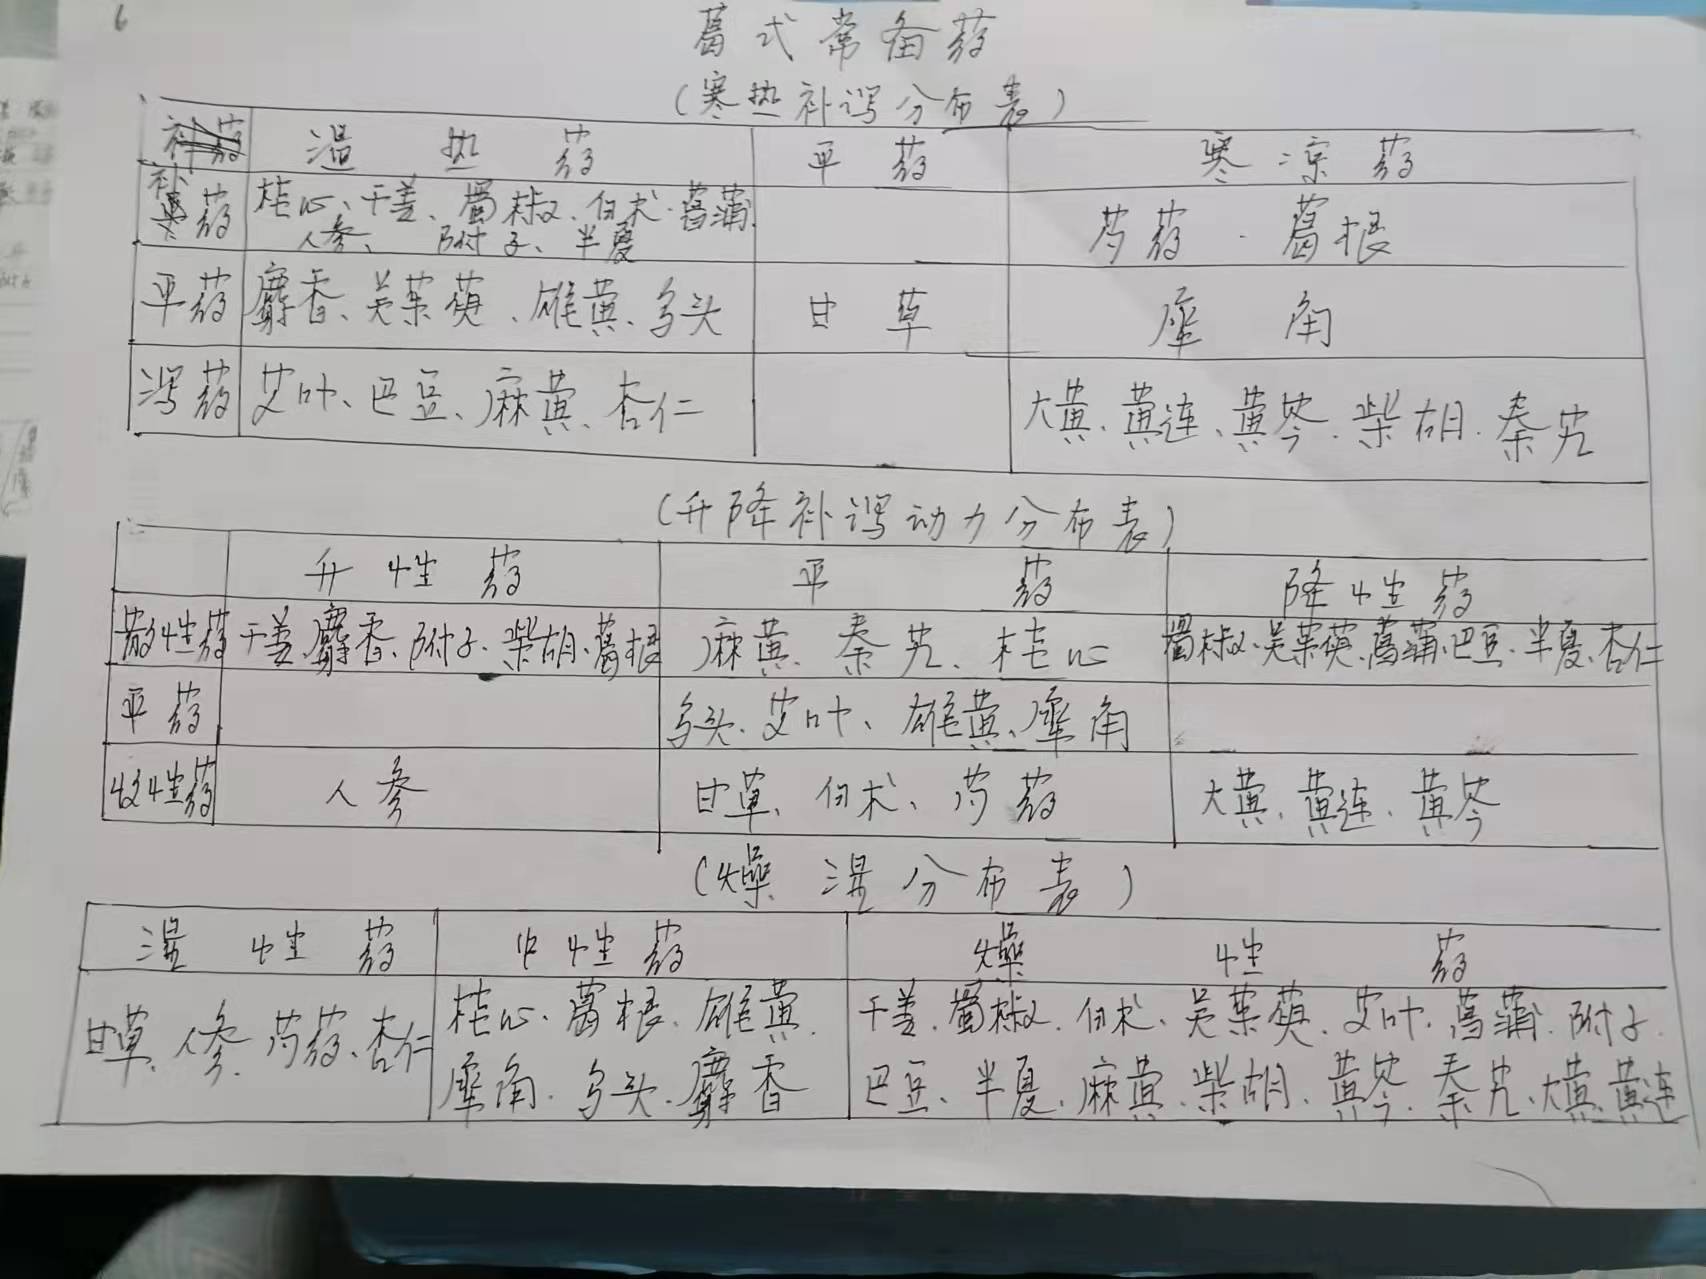 6
葛式常备药
(寒热补泻分布表)
温热药 平药 寒凉药
补药 桂心、干姜、蜀椒、白术、菖蒲、 芍药、葛根
人参、附子、半夏
平药 麝香、吴茱萸、雄黄、乌头 甘草 犀角
泻药 艾叶、巴豆、麻黄、杏仁 大黄、黄连、黄芩、柴胡、秦艽
(升降补泻动力分布表)
升性药 平药 降性药
散性药 干姜、麝香、附子、柴胡、葛根 麻黄、秦艽、桂心 蜀椒、吴茱萸、菖蒲、巴豆、半夏、杏仁
平药 乌头、艾叶、雄黄、犀角
收性药 人参 甘草、白术、芍药 大黄、黄连、黄芩
(燥湿分布表)
湿性药 中性药 燥性药
甘草、人参、芍药、杏仁 桂心、葛根、雄黄、 干姜、蜀椒、白术、吴茱萸、艾叶、菖蒲、附子、
犀角、乌头、麝香 巴豆、半夏、麻黄、柴胡、黄芩、秦艽、大黄、黄连